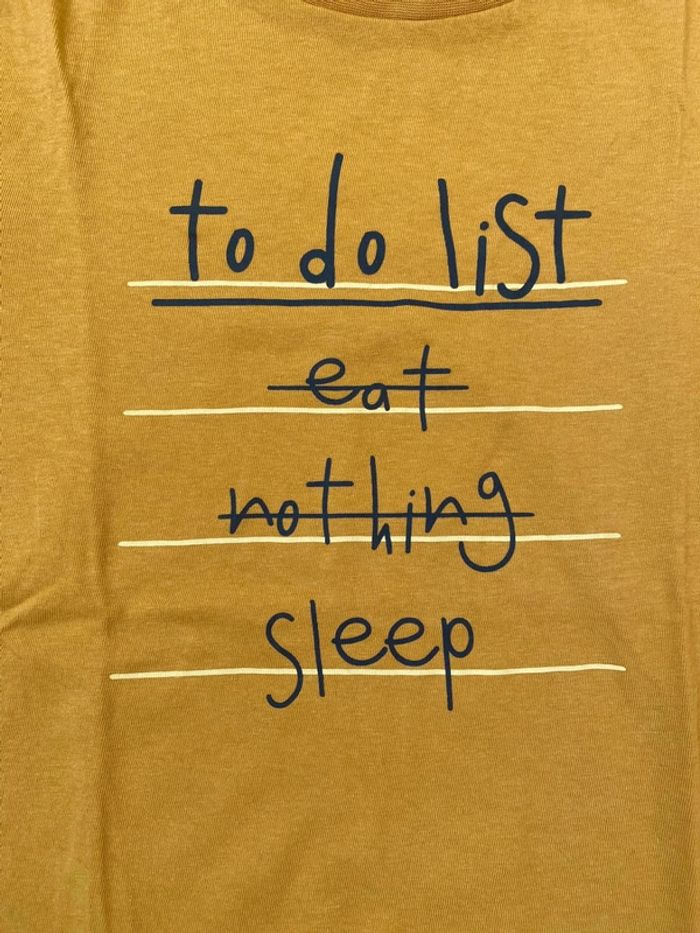 to do list
eat
nothing
sleep